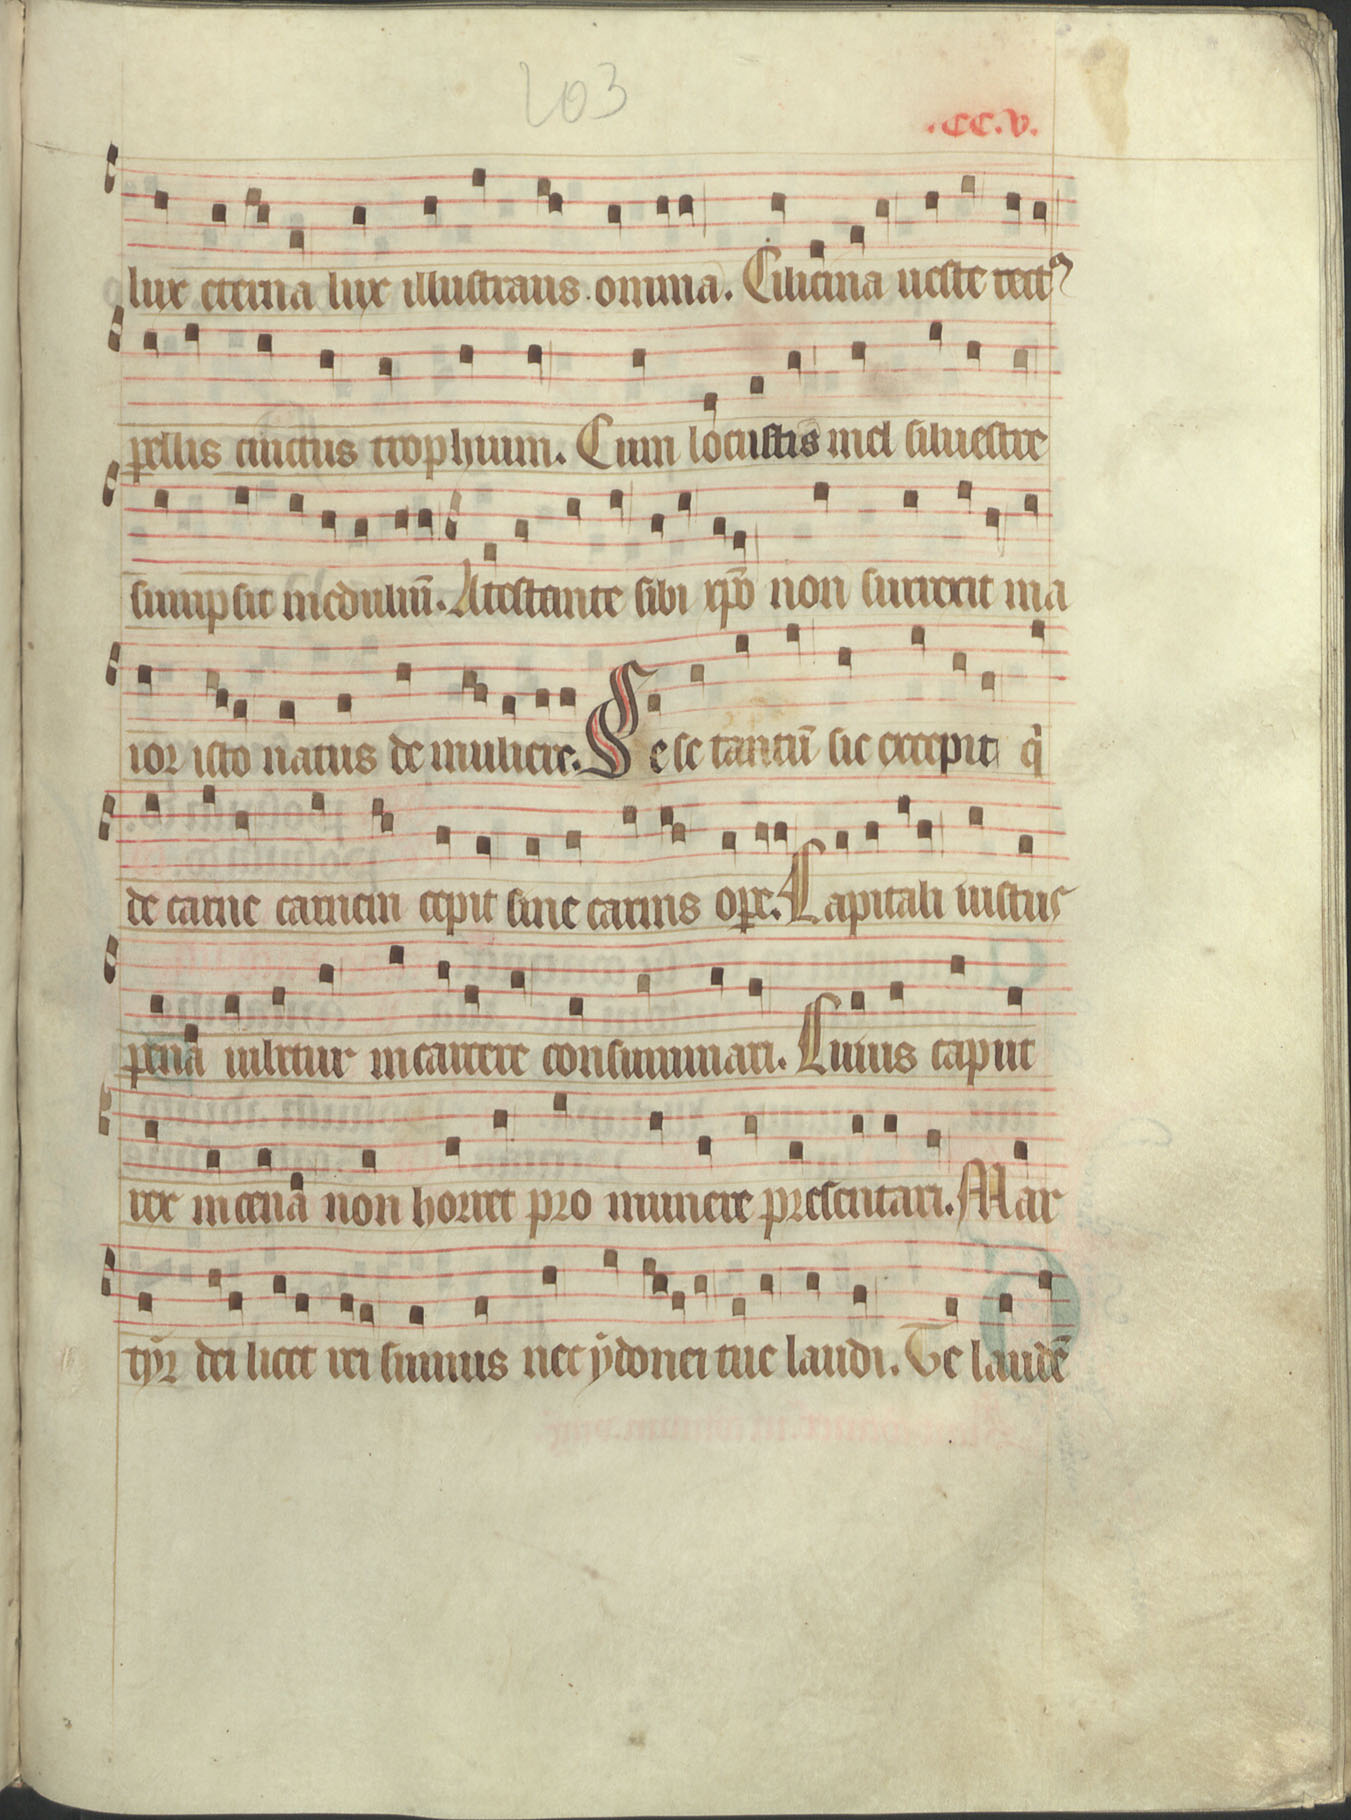 203
.CC.V.
lux eterna lux illustrans omnia. Cilicina ueste tectꝰ
pellis cinctus trophuum. Cum locustis mel siluestre
sumpsit medulliū. Atestante sibi xp̄o non surrexit ma
ior isto natus de muliere. Sese tantū sic excepit qͥ
de carne carnem cepit sine carnis oꝑe. Capitali iustus
pena iubetur in carcere consummari. Cuius caput
rex in cena non horret pro munere presentari. Mar
tyr dei licet rei simus nec ydonei tue laudi. Te laudē